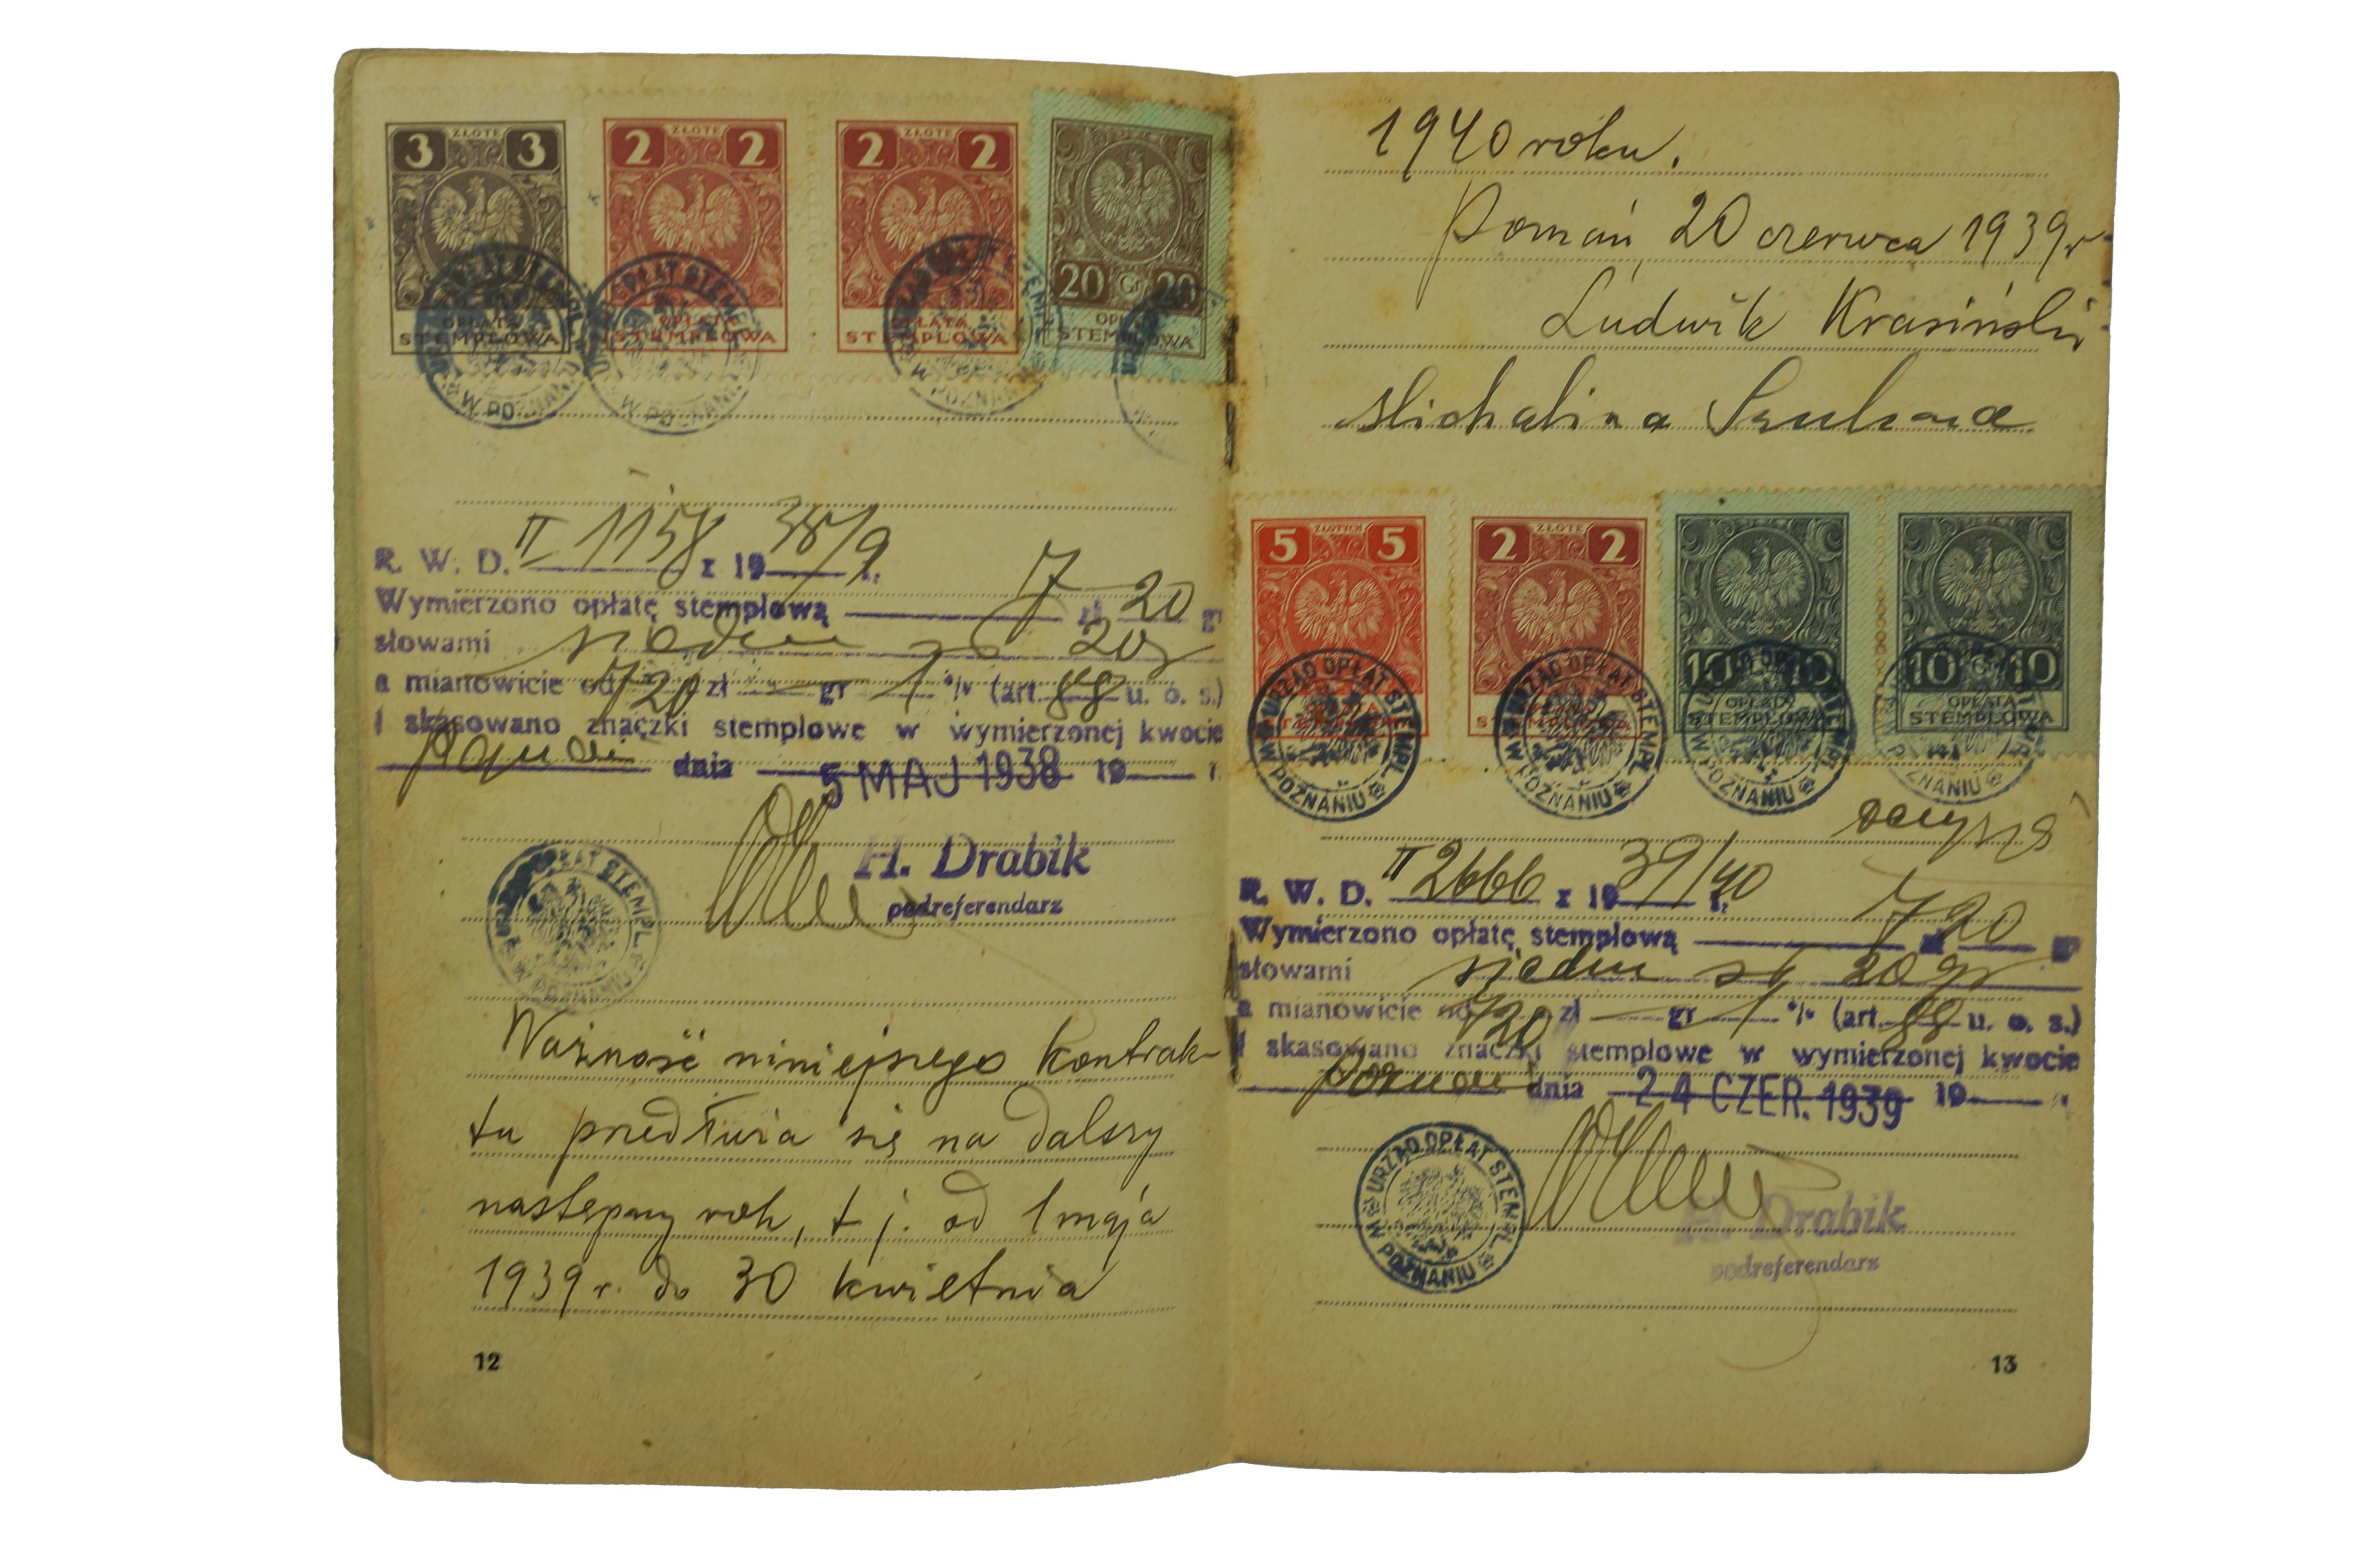 3 ZŁOTE 3
OPŁATA
STEMPLOWA
2 ZŁOTE 2
OPŁATA
STEMPLOWA
2 ZŁOTE 2
OPŁATA
STEMPLOWA
20 Gr 20
OPŁATA
STEMPLOWA
W POZNANIU
R. W. D. II 1158 z 1938/9 r.
Wymierzono opłatę stemplową 7 zł 20 gr
słowami siedem zł 20 gr
a mianowicie od 720 zł — gr 1 % (art. 88 u. o. s.)
i skasowano znaczki stemplowe w wymierzonej kwocie
Poznań dnia 5 MAJ 1938 19 r.
H. Drabik
podreferendarz
Ważność niniejszego kontrak-
tu przedłuża się na dalszy
następny rok, t j. od 1 maja
1939 r. do 30 kwietnia
12
1940 roku.
Poznań, 20 czerwca 1939 r
Ludwik Krasiński
Michalina
5 ZŁOTYCH 5
OPŁATA
STEMPLOWA
2 ZŁOTE 2
OPŁATA
STEMPLOWA
10 Gr 10
OPŁATA
STEMPLOWA
10 Gr 10
OPŁATA
STEMPLOWA
URZĄD OPŁAT STEMPL. W POZNANIU
URZĄD OPŁAT STEMPL. W POZNANIU
URZĄD OPŁAT STEMPL. W POZNANIU
R. W. D. II 2666 z 1939/40 r.
Wymierzono opłatę stemplową 7 zł 20 gr
słowami siedem zł 20 gr
a mianowicie od 720 zł — gr 1 % (art. 88 u. o. s.)
i skasowano znaczki stemplowe w wymierzonej kwocie
Poznań dnia 24 CZER. 1939 19 r.
URZĄD OPŁAT STEMPL. W POZNANIU
H. Drabik
podreferendarz
13